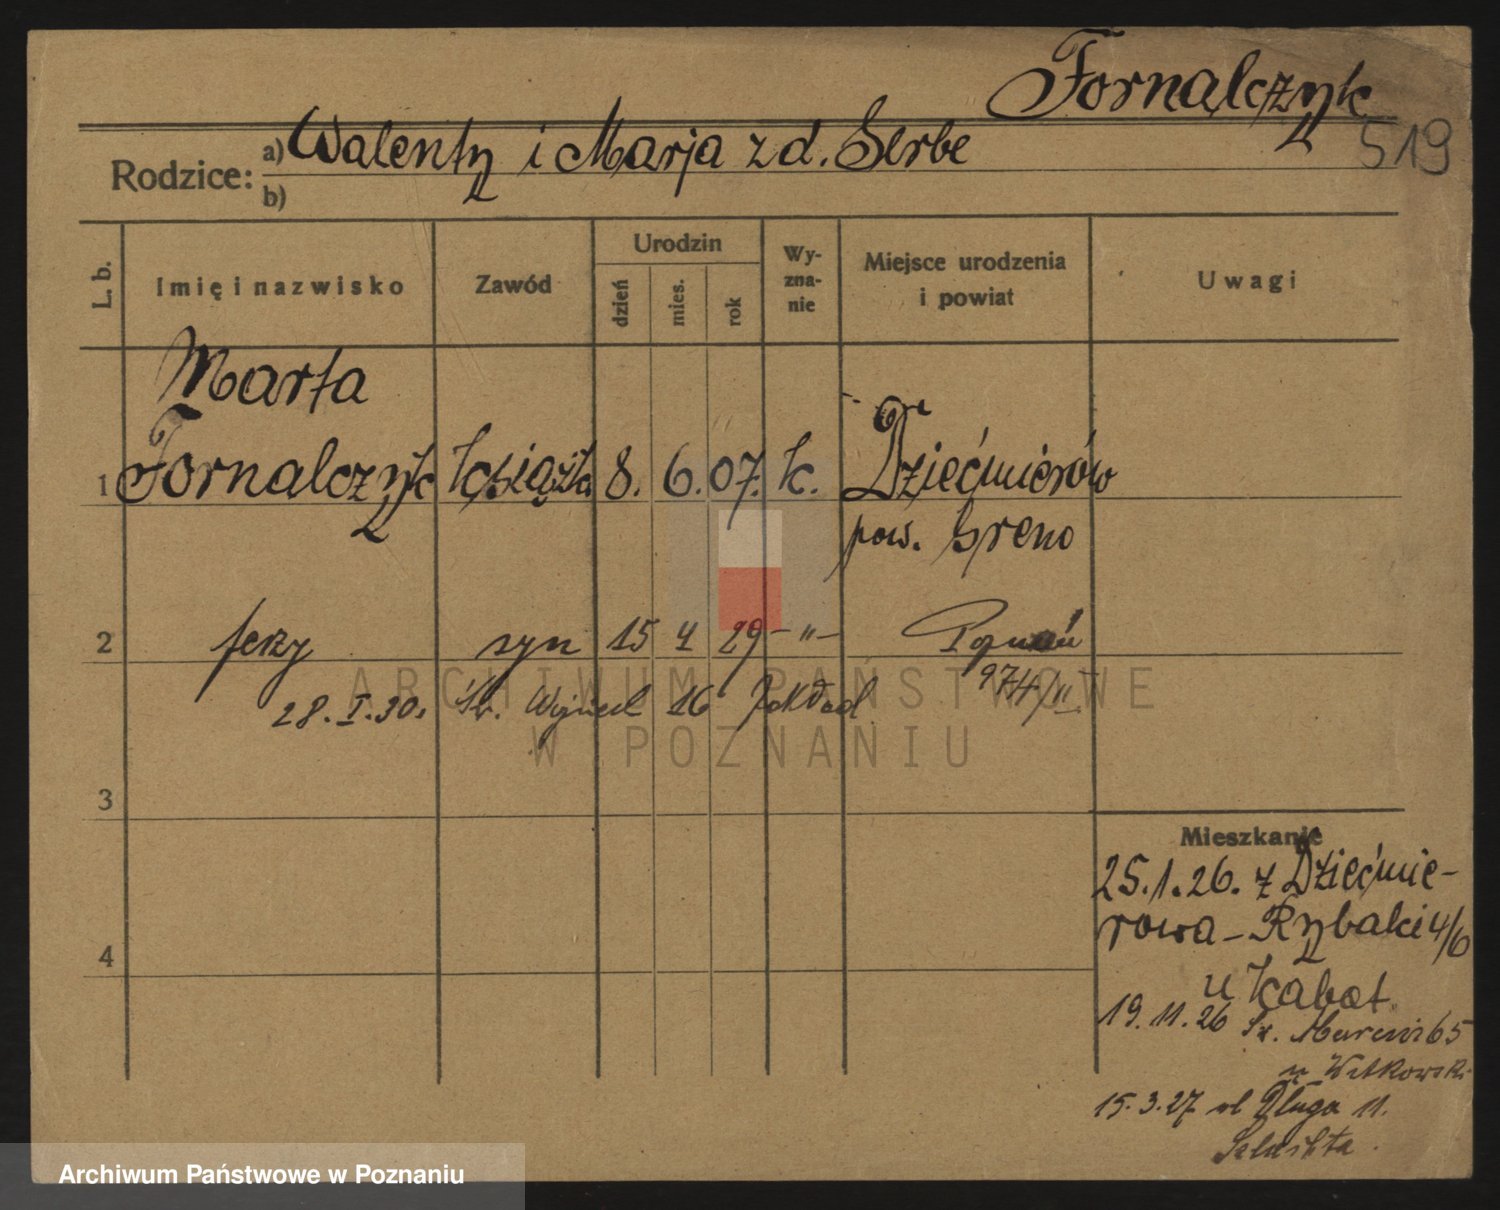 Fornalczyk
519
Rodzice:
a) Walenty i Marja z d. Serbe
b)
L. b.
Imię i nazwisko
Zawód
Urodzin
dzień
mies.
rok
Wy-
zna-
nie
Miejsce urodzenia
i powiat
Uwagi
Marta
1 Fornalczyk książk. 8. 6. 07. k. Dziećmierów
pow. Śrem
2 Jerzy syn 15 4 29 – " – Poznań
974/II
28. I. 30. Św. Wojciech 16 Zakład
3
4
Mieszkanie
25.1.26. z Dziećmie-
rowa – Rybaki 4/6
u Kabat.
19.11.26 Św. Marcin 65
u Witkowski
15.3.27 ul Długa 11.
ARCHIWUM PAŃSTWOWE
W POZNANIU
Archiwum Państwowe w Poznaniu